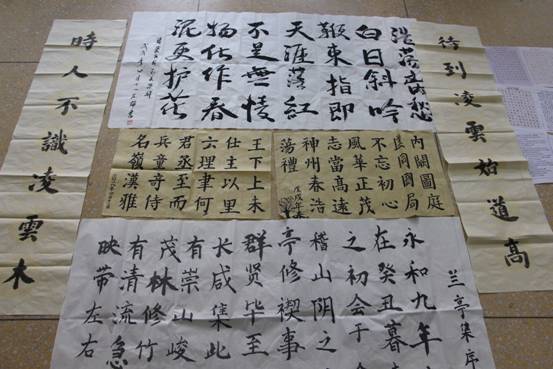 待到凌雲始道高
浩荡離愁
白日斜吟
鞭東指即
天涯落紅
不是無情
物化作春
泥更护花
時人不識凌雲木
内闕圖庭
不忘初心
風華正茂
志當高遠
神州春浩
蕩禮
戊戌年
王下上未
仕主以里
六理聿何
君丞至而
兵童奇侍
名嶺漢雅
兰亭集序
永和九年
在癸丑暮
之初会于
稽山阴之
亭修禊事
群贤毕至
长咸集此
有崇山峻
茂林修竹
有清流急
映带左右